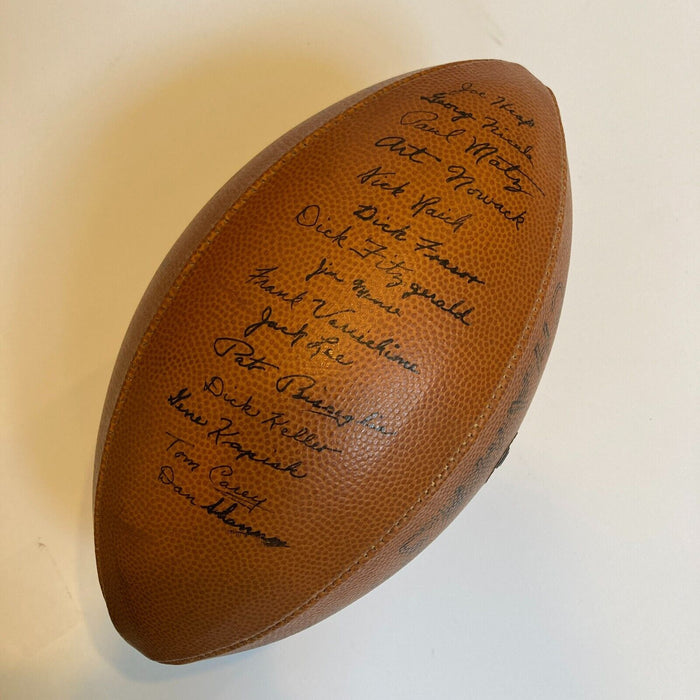 Joe
George Nicula
Paul Matz
Art Nowack
Nick Raich
Dick Frasor
Dick Fitzgerald
Jim
Frank Varrichione
Jack Lee
Pat Bisceglia
Dick Keller
Gene Kapish
Tom Carey
Dan Shannon